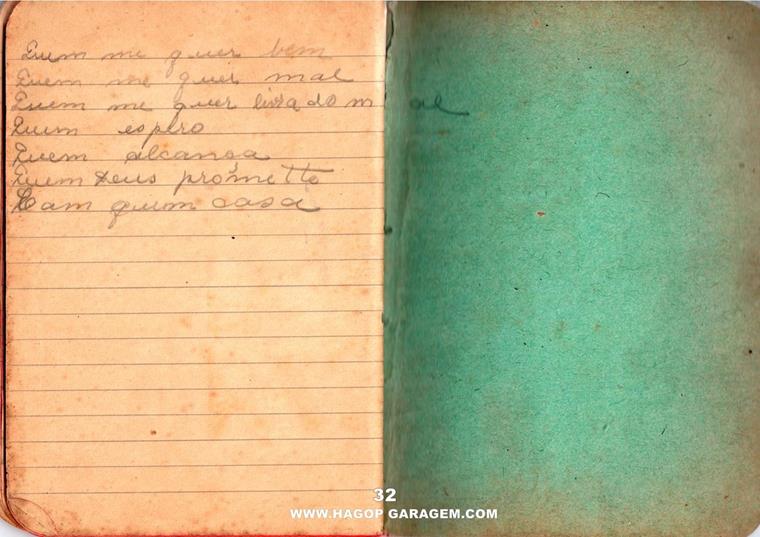 Quem me quer bem
Quem me quer mal
Quem me quer livra do mal
Quem espero
Quem alcansa
Quem Deus prometto
Cam quem casa
32
WWW.HAGOP GARAGEM.COM